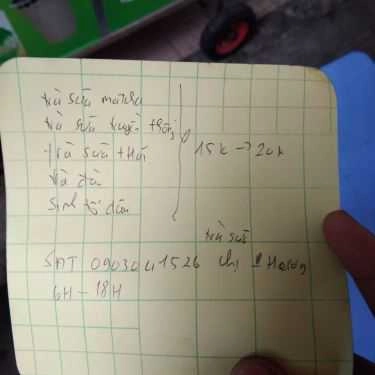 trà sữa matcha
trà sữa truyền thống
trà sữa + Hái
trà đào
Sinh tố dâu
15k → 20k
trà sữa
SĐT 0903041526 chị Hương
6H - 18H